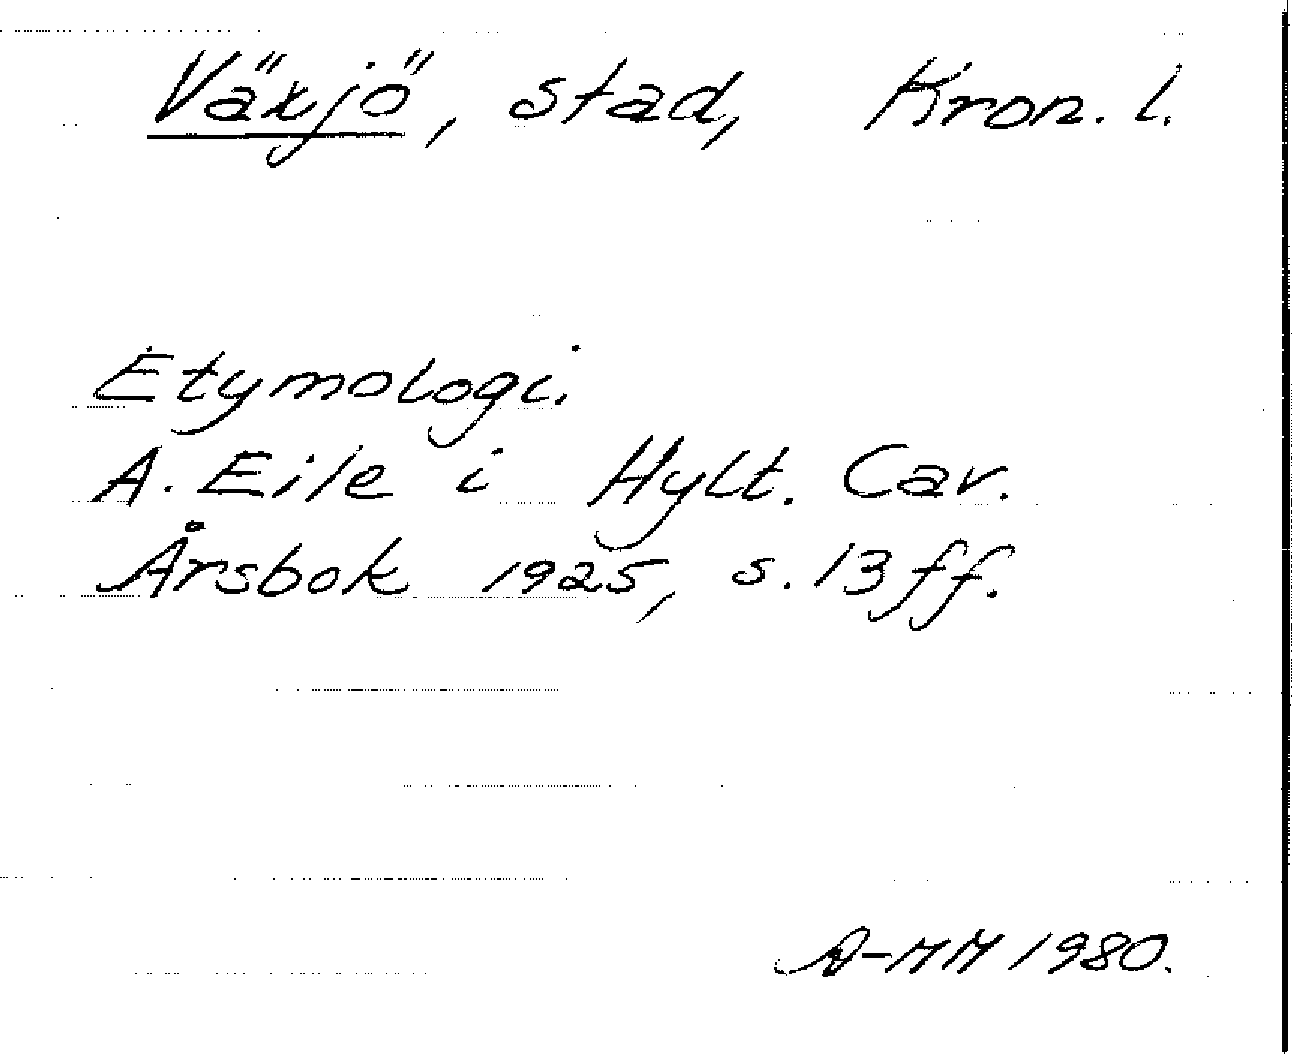 Växjö, stad, Kron. l.
Etymologi.
A. Eile i Hylt. Cav.
Årsbok 1925, s. 13 ff.
A-MM 1980.